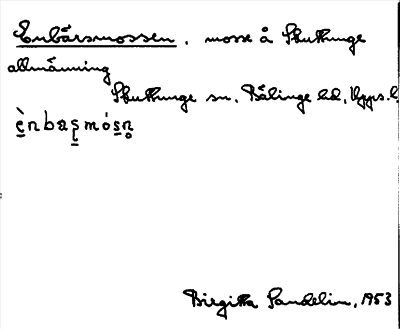 Enbärsmossen. mosse å Skuttunge
allmänning
Skuttunge sn, Bälinge hd, Upps. l.
è̱nbaʂ̱mós̱n̥
Birgitta Sandelin, 1953